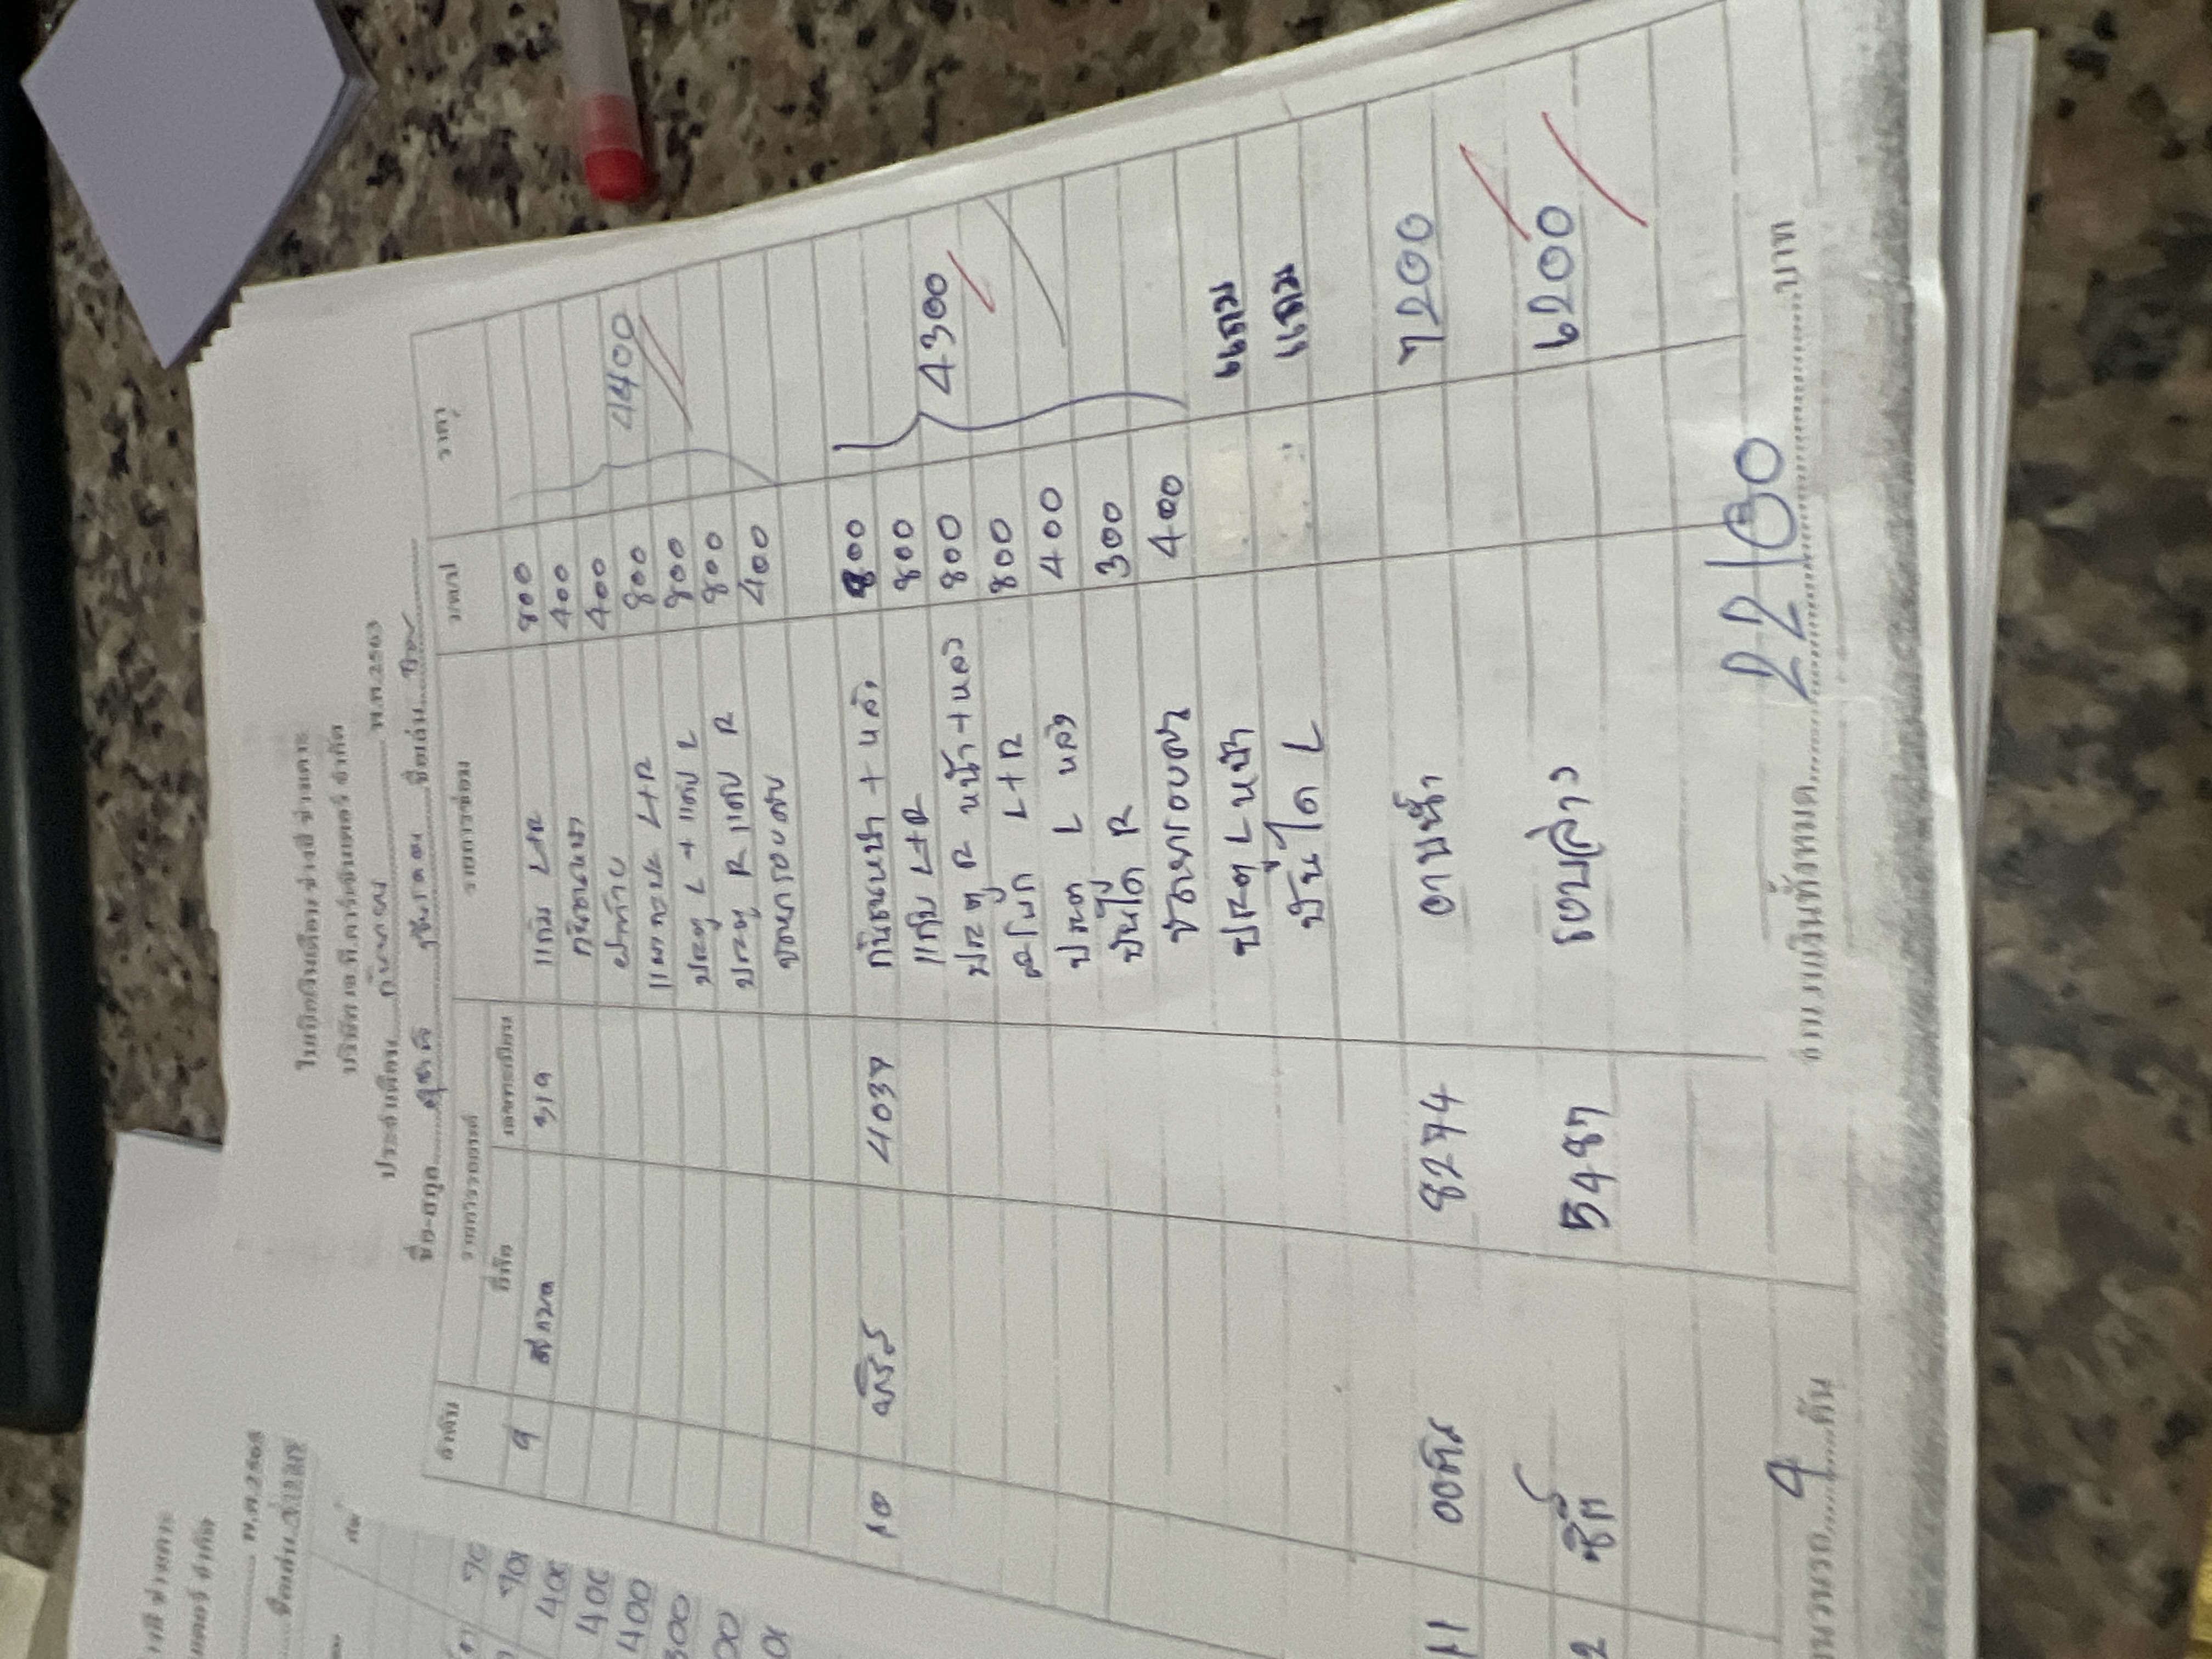 ใบเบิกเงินเดือน ช่างสี ช่างเคาะ
บริษัท เจ.พี.คาร์เซ็นเตอร์ จำกัด
ประจำเดือน.....กันยายน..........พ.ศ.2563
ชื่อ-สกุล.....สุชาติ.....ชื่อเล่น
ลำดับ รายการรถยนต์ รายการซ่อม ราคา
ยี่ห้อ เลขทะเบียน
9 319 แก้ม L+R 800
กันชนหน้า 400
ฝาท้าย 400
L+R 800
ประตู L + แคบ L 800
ประตู R แคบ R 800
400
4400
10 4037 กันชนหน้า + หลัง 800
แก้ม L+R 800
ประตู R หน้า+หลัง 800
สะโพก L+R 800
ประตู L หลัง 400
บันได R 300
400
4300
ประตู L หน้า แถม
บันได L แถม
11 8274 อาบน้ำ 7200
5487 รอบล่าง 6200
4.....คัน
จำนวนเงินทั้งหมด.....22100.....บาท
พ.ศ.2563
400
400
400
300